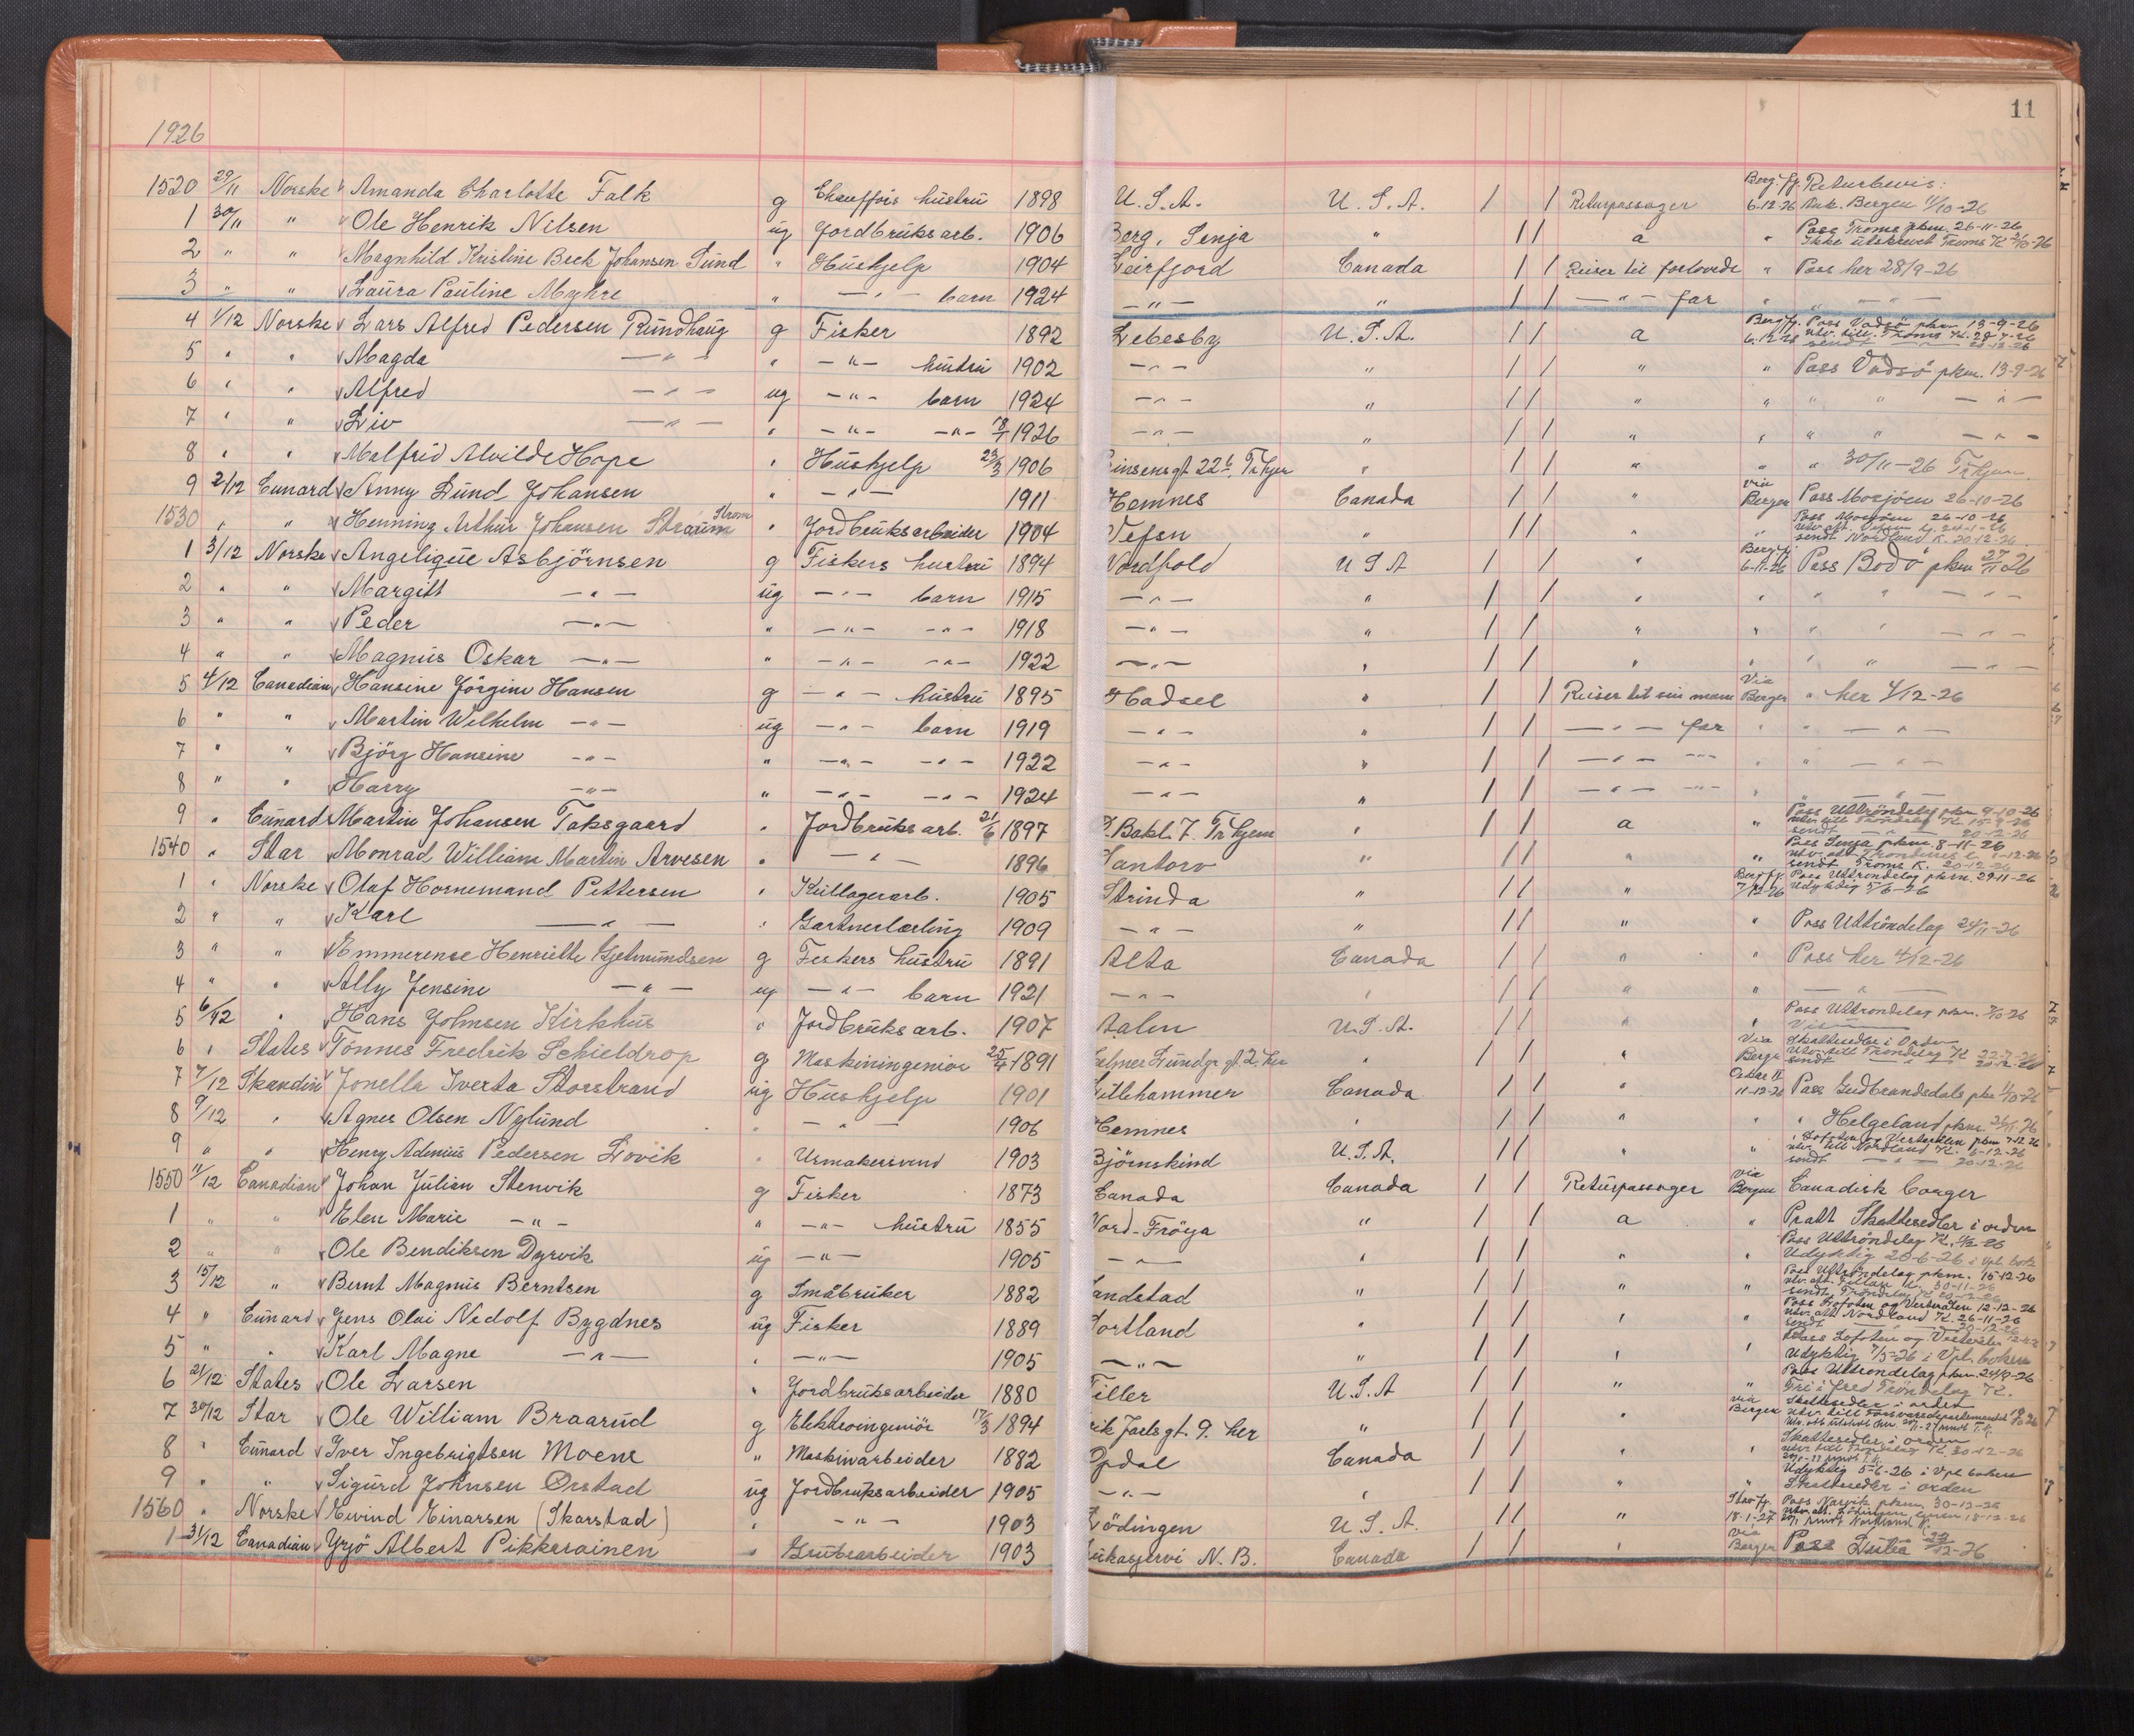 11
1926
1520 29/11 Norske Amanda Charlotte Falk g Chaufførs hustru 1898 U.S.A. U.S.A. / / Returpassager Berg.fj. 6-12-26 Returbevis: Bergen 11/10-26
1 30/11 " Ole Henrik Nilsen ug Jordbruksarb. 1906 Berg, Senja " / / a " Pass Troms pkm. 26-11-26 Ikke utskrevet Troms K.
2 " " Magnhild Kristine Beck Johansen Sund " Hushjelp 1904 Leirfjord Canada / / Reiser til forlovede " Pass her 28/9-26
3 " " Laura Pauline Myhre " — " — barn 1924 — " — " / / — " — far " " — " —
4 1/12 Norske Lars Alfred Pedersen Rundhaug g Fisker 1892 Lebesby U.S.A. / / a Berg.fj. 6-12-26 Pass Vadsö pkm 13-9-26 utv. till. Troms K.
5 " " Magda — " — " — " — hustru 1902 — " — " / / " " Pass Vadsö pkm. 13-9-26
6 " " Alfred — " — ug — " — barn 1924 — " — " / / " " " " — " —
7 " " Liv — " — " — " — — " — 1926 — " — " / / " " " " — " —
8 " " Malfrid Alvilde Hope " Hushjelp 23/3 1906 Prinsensgt 22b Tr hjem " / / " " " 30/11-26 Tr hjem
9 2/12 Cunard Anny Lund Johansen " — " — 1911 Hemnes Canada / / " via Bergen Pass Mosjöen 26-10-26
1530 " " Henning Arthur Johansen Straum Strom " Jordbruksarbeider 1904 Vefsn " / / " " Pass Mosjöen 26-10-26 sendt Nordland K. 20-12-26
1 3/12 Norske Angelique Asbjörnsen g Fiskers hustru 1894 Nordfold U S A / / " Berg.fj. 6-11-26 Pass Bodö pkm 27/11 26
2 " " Margitt — " — ug — " — barn 1915 — " — " / / " " " " — " —
3 " " Peder — " — " — " — — " — 1918 — " — " / / " " " " — " —
4 " " Magnus Oskar — " — " — " — — " — 1922 — " — " / / " " " " — " —
5 4/12 Canadian Hansine Jörgine Hansen g — " — hustru 1895 Hadsel " / / Reiser til sin mann Via Bergen " her 4/12-26
6 " " Martin Wilhelm — " — ug — " — barn 1919 — " — " / / — " — far " " — " —
7 " " Björg Hansine — " — " — " — — " — 1922 — " — " / / — " — — " — " " — " —
8 " " Harry — " — " — " — — " — 1924 — " — " / / — " — — " — " " — " —
9 " Cunard Martin Johansen Taksgaard " Jordbruksarb. 21/6 1897 Bakl. 7. Tr hjem " / / a " Pass Uttröndelag pkm 9-10-26 sendt — " — 20-12-26
1540 " Star Monrad William Martin Arvesen " — " — 1896 " / / " " Pass Senja pkm 8-11-26 sendt Troms K. 20-12-26
1 " Norske Olaf Hornemand Pettersen " Kullagerarb. 1905 Strinda " / / " Berg.fj. 7/12-26 Pass Uttröndelag pkm. 29-11-26 Udyktig 5/6-26
2 " " Karl — " — " Gartnerlærling 1909 — " — " / / " " Pass Uttröndelag 24/11-26
3 " " Emmerense Henriette Gjetmundsen g Fiskers hustru 1891 Alta Canada / / " " Pass her 4/12-26
4 " " Ally Jensine — " — ug — " — barn 1921 — " — " / / " " — " —
5 6/12 " Hans Johnsen Kirkhus " Jordbruksarb. 1907 Aalen U.S.A. / / " " Pass Uttröndelag pkm. 26
6 " States Tönnes Fredrik Schieldrop g Maskiningeniör 1891 " / / " Via Bergen Skattesedler i Orden
7 7/12 Skandin Jonella Iverta Storstrand ug Hushjelp 1901 Lillehammer Canada / / " Oskar II 11-12-26 Pass Gudbrandsdals pkm 1/10-26
8 9/12 " Agnes Olsen Nylund " — " — 1906 Hemnes " / / " " " Helgeland pkm 26/11-26
9 " " Henry Adenius Pedersen Lovik " Urmakersvend 1903 Björnskind U.S.A. / / " " " Lofoten og Vesterålen pkm 7-12-26 sendt — " — 20-12-26
1550 11/12 Canadian Johan Julian Stenvik g Fisker 1873 Canada Canada / / Returpassager via Bergen Canadisk borger
1 " " Elen Marie — " — " — " — hustru 1855 Nord-Fröya " / / a " Pratt Skattesedler i orden
2 " " Ole Bendiksen Dyrvik ug — " — 1905 — " — " / / " " Pass Uttröndelag Udyktig 26-6-26 i Vpl. bok
3 15/12 " Bernt Magnus Berntsen g Småbruker 1882 Sandstad " / / " " Pass Uttröndelag pkm. 15-12-26
4 " Cunard Jens Olai Nedolf Bygdnes ug Fisker 1889 Sortland " / / " " Pass Lofoten og Vesterålen 12-12-26 Nordland K. 26-11-26
5 " " Karl Magne — " — " — " — 1905 — " — " / / " " Pass Lofoten og Vesterålen Udyktig 7/5-26 i Vpl. boken
6 21/12 States Ole Larsen " Jordbruksarbeider 1880 Tiller U.S.A / / " " Pass Uttröndelag pkm. Fri i fred Tröndelag K.
7 30/12 Star Ole William Braarud g Elektroingeniör 17/3 1894 Erik Jarls gt. 9. her " / / " via Bergen Skattesedler i orden
8 " Cunard Iver Ingebrigtsen Moene " Maskinarbeider 1882 Opdal Canada / / " " Skattesedler i orden
9 " " Sigurd Johnsen Örstad ug Jordbruksarbeider 1905 — " — " / / " " Udyktig 5-6-26 i Vpl boken Skattesedler i orden
1560 " Norske Eivind Einarsen (Skarstad) " — " — 1903 Lödingen U.S.A. / / " Stav.fj. 18-1-27 Pass Narvik pkm. 30-12-26
1 31/12 Canadian Yrjö Albert Pikkarainen " Grubearbeider 1903 Jukasjervi N. B. Canada / / " via Bergen Pass Luleå 29/12-26